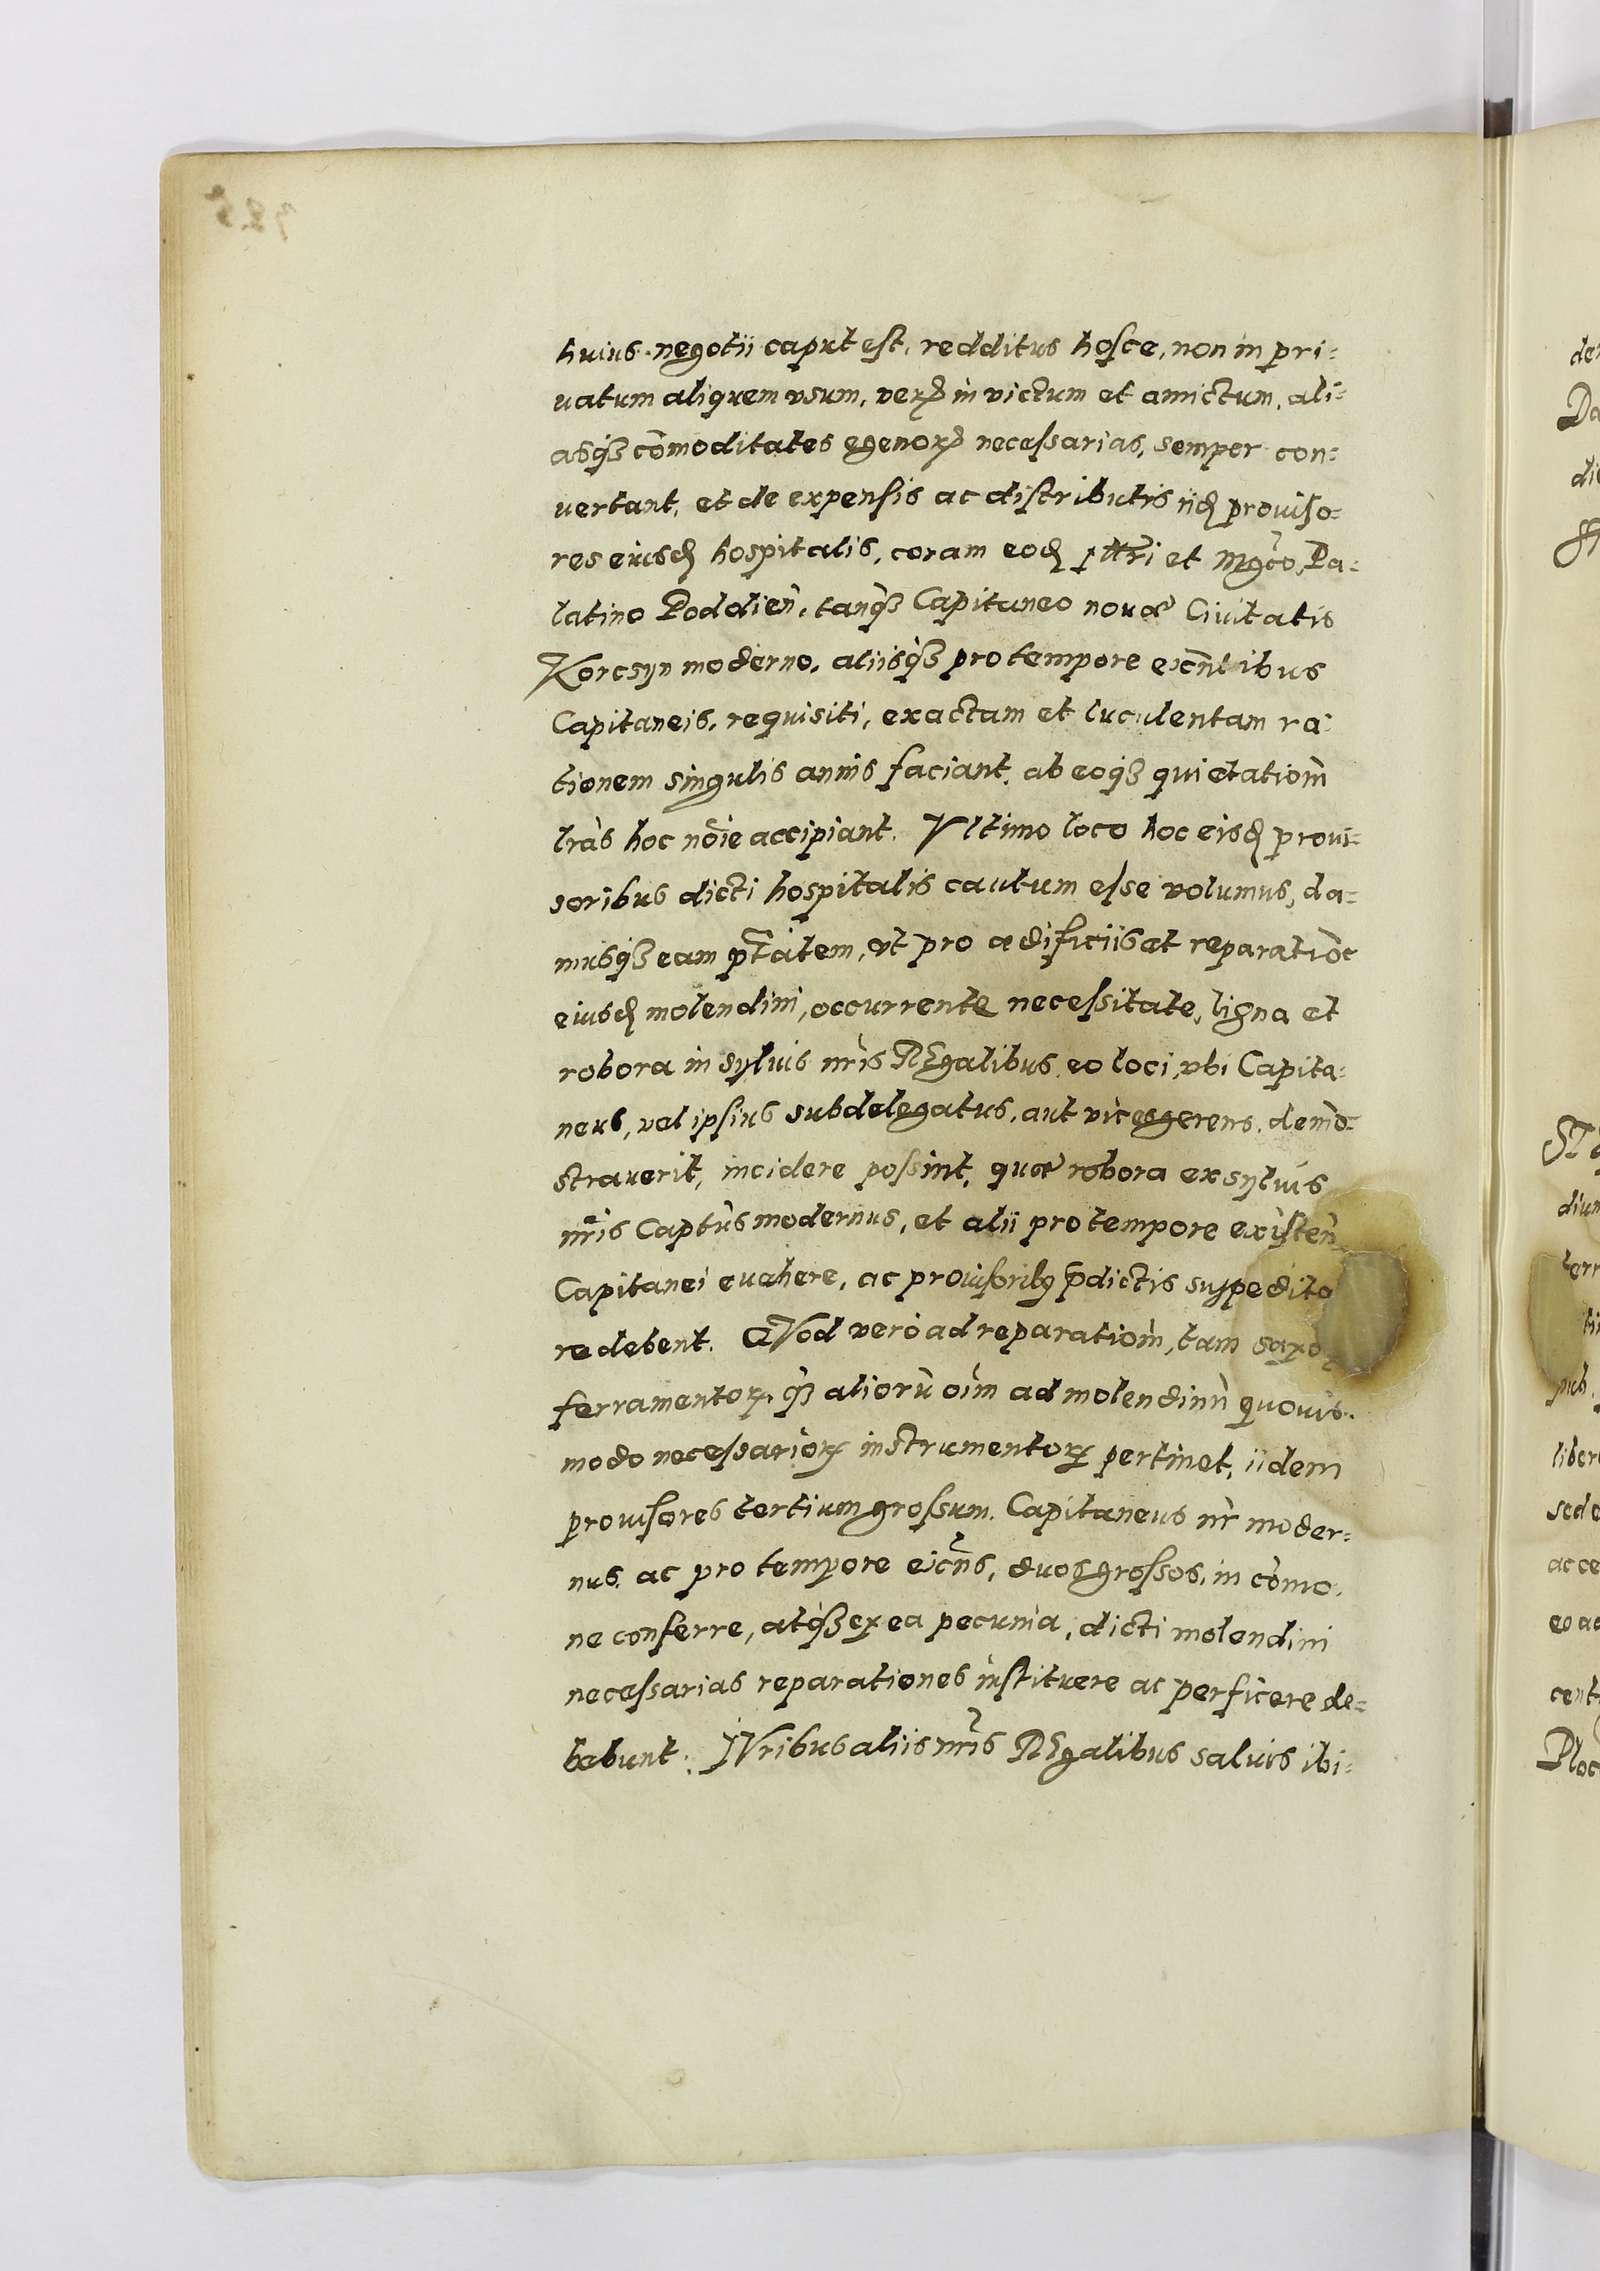 huius negotii caput est, redditus hosce, non in pri:
uatum aliquem vsum, verꝝ in victum et amictum, ali:
asqꝫ com̄oditates egenoꝝ necessarias, semper con:
uertant, et de expensis ac distributis iid̨ prouiso:
res eiusd̨ hospitalis, coram eod̨ et Mgco, Pa:
latino Poddien̄, tanqꝫ Capitaneo nouæ Ciuitatis
Korcsyn moderno, aliisqꝫ pro tempore exn̄tibus
Capitaneis, requisiti, exactam et luculentam ra:
tionem singulis annis faciant, ab eoqꝫ quietatiom̄
lrās hoc nōie accipiant. Vltimo loco hoc eisd̨ proui:
soribus dicti hospitalis cautum esse volumus, da:
musqꝫ eam ptātem, vt pro ædificiis et reparatiōe
eiusd̨ molendini, occurrente necessitate, ligna et
robora in syluis nr̄is REgalibus eo loci, vbi Capita:
neus, vel ipsius subdelegatus, aut vicesgerens, demō:
strauerit, incidere possint, quæ robora ex syluis
nr̄is Captūs modernus, et alii pro tempore existen̄
Capitanei euehere, ac prouisoribꝰ p̄dictis suppedita
re debent. QVod vero ad reparatiom̄, tam saxo
ferramentoꝝ, qꝫ aliorū oīm ad molendinū quouis
modo necessarioꝝ instrumentoꝝ pertinet, iidem
prouisores tertium grossum, Capitaneus nr̄ moder:
nus, ac pro tempore exn̄s, duos grossos, in cōmo:
ne conferre, atqꝫ ex ea pecunia, dicti molendini
necessarias reparationes instituere ac perficere de:
bebunt. IVribus aliis nr̄is REgalibus saluis ibi: